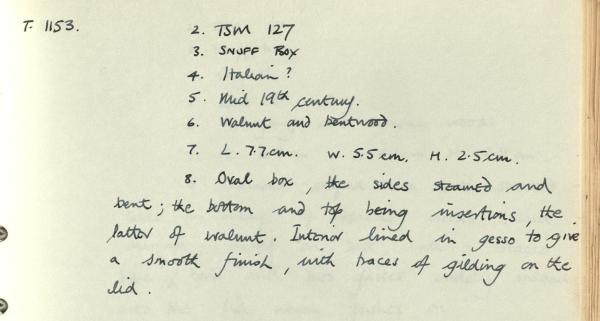 T. 1153.
2. TSM 127
3. SNUFF BOX
4. Italian?
5. Mid 19th century.
6. Walnut and bentwood.
7. L. 7.7.cm. W. 5.5 cm. H. 2.5 cm.
8. Oval box, the sides steamed and
bent; the bottom and top being insertions, the
latter of walnut. Interior lined in gesso to give
a smooth finish, with traces of gilding on the
lid.